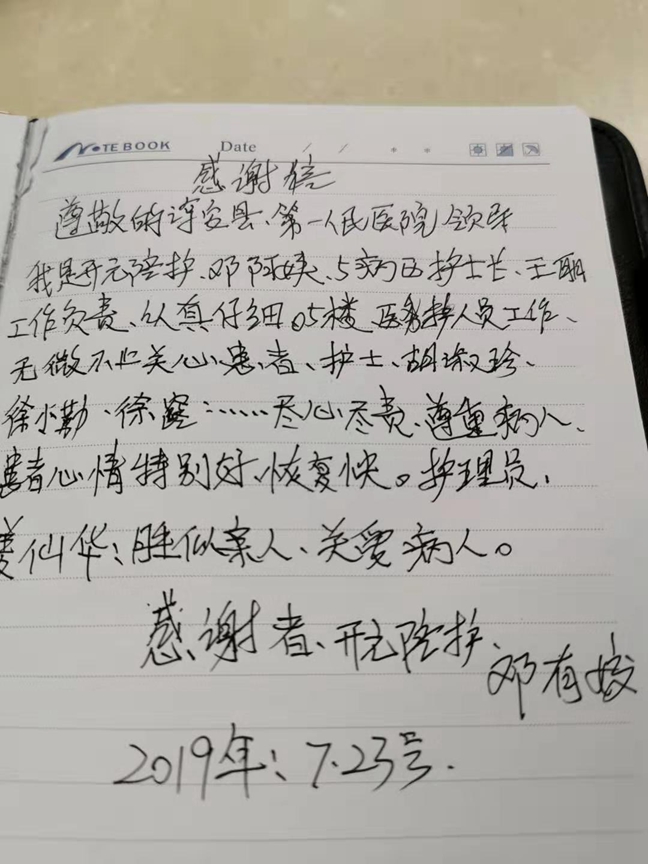 NOTEBOOK Date / / * *
感谢信
尊敬的淳安县、第一人民医院领导
我是开元陪护、邓阿姨、5病区护士长、王
工作负责、认真仔细。5楼 医务护人员工作、
无微不止关心患者、护士、胡淑珍、
徐小勤、徐 :……尽心尽责、尊重病人、
患者心情特别好、恢复快。护理员、
姜仙华:胜似亲人、关爱病人。
感谢者、开元陪护、
邓有姣
2019年:7.23号.